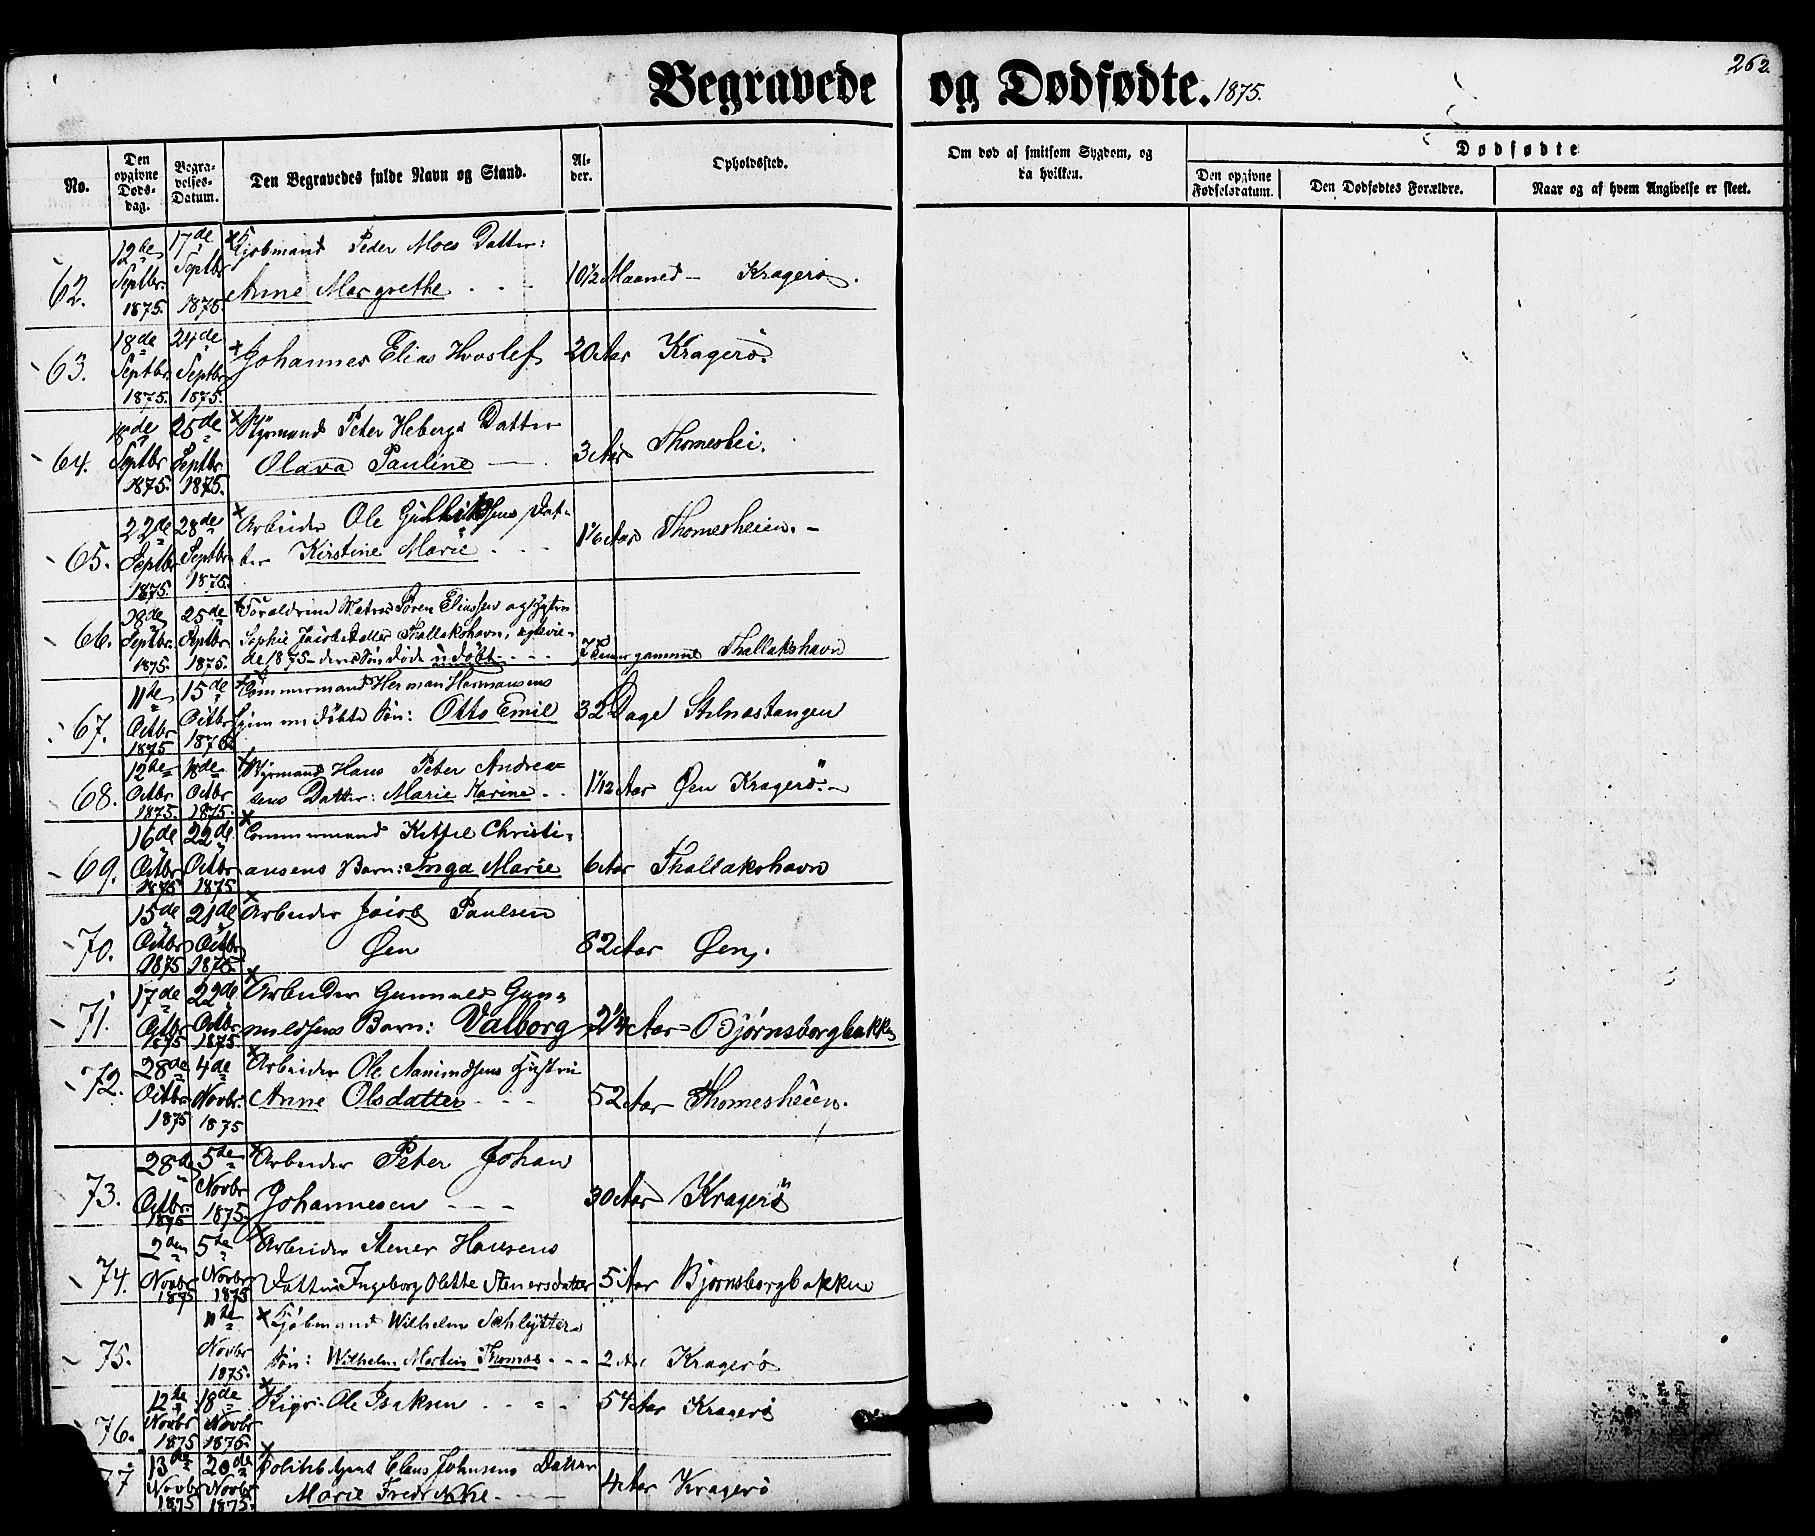 262
Begravede og Dødfødte. 1875.
No.
Den opgivne Døds-dag.
Begra-velses-Datum.
Den Begravedes fulde Navn og Stand.
Al-der.
Opholdssted.
Om død af smitsom Sygdom, og da hvilken.
Dødfødte
Den opgivne Fødselsdatum.
Den Dødfødtes Forældre.
Naar og af hvem Angivelse er skeet.
62. 12te Septbr. 1875. 17de Septbr 1875. Kjøbmand Peder Moes Datter:
Anne Margrethe 10 1/2 Maaned – Kragerø.
63. 18de Septbr. 1875. 24de Septbr 1875. Johannes Elias Hvoslef 20 Aar Kragerø.
64. 18de Septbr 1875. 25de Septbr. 1875. Styrmand Peter Hebergs Datter
Olava Pauline 3 Aar Thomeshei.
65. 22de Septbr 1875. 28de Septbr 1875. Arbeider Ole Gullviksens Dat-
ter Kirstine Marie 1 1/6 Aar Thomesheien.
66. Septbr. 1875. 25de Septbr 1875. Forældrene Matros Søren Eliassen og Hustru
Sophie Jacobsdatter Thallakshavn, ægtevie-
de 1875 – deres Søn døde udøbt gammel Thallakshavn
67. 11te Octbr 1875 15de Octbr 1875. Tømmermand Herman Hermansens
hjemmedøbte Søn: Otto Emil 32 Dage Stilnestangen
68. 12te Octbr 1875. 18de Octbr 1875. Styrmand Hans Peter Andrea-
sens Datter: Marie Karine 1 1/12 Aar Øen Kragerø.
69. 16de Octbr 1875 22de Octbr 1875 Tømmermand Kittil Christi-
ansens Barn: Inga Marie 6 Aar Thallakshavn
70. 15de Octbr 1875 21de Octbr 1875. Arbeider Jacob Paulsen
Øen 82 Aar Øen.
71. 17de Octbr 1875 22de Octbr 1875. Arbeider Gunnuld Gun-
nuldsens Barn: Valborg 2 1/4 Aar Bjørnsborgbakken
72. 28de Octbr 1875 4de Novbr. 1875 Arbeider Ole Aanundsens Hustru
Anne Olsdatter 52 Aar Thomesheien.
73. 28de Octbr. 1875 5te Novbr 1875. Arbeider Peter Johan
Johannesen 30 Aar Kragerø
74. 2den Novbr 1875 5te Novbr 1875 Arbeider Stener Hansens
Datter: Ingeborg Olette Stenersdatter 5 Aar Bjørnsborgbakken
75. 11te Novbr 1875. Kjøbmand Wilhelm Schlytters
Søn: Wilhelm Martin Thomas 2 Aar Kragerø
76. 12te Novbr 1875 18de Novbr 1875. Ole Isaksen 54 Aar Kragerø
77 13de Novbr 1875 20de Novbr 1875. Politibetjent Claus Johnsens Datter
Marie Fredrikke 4 Aar Kragerø